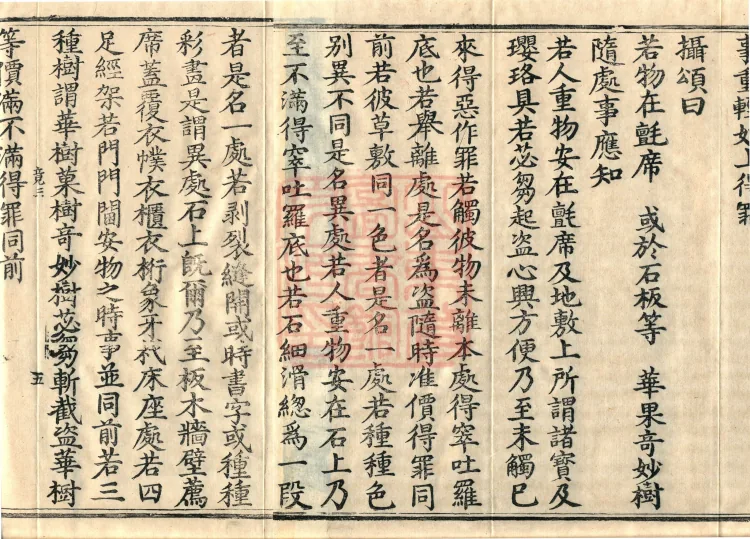 事重輕如上得罪
攝頌曰
若物在氈席 或於石板等 華果奇妙樹
隨處事應知
若人重物安在氈席及地敷上所謂諸寶及
瓔珞具若苾芻起盜心興方便乃至未觸已
來得惡作罪若觸彼物未離本處得窣吐羅
底也若舉離處是名為盜隨時准價得罪同
前若彼草敷同一色者是名一處若種種色
別異不同是名異處若人重物安在石上乃
至不滿得窣吐羅底也若石細滑緫為一段
者是名一處若剥裂縫開或時書字或種種
彩畫是謂異處石上既爾乃至板木牆壁薦
席蓋覆衣幞衣櫃衣桁象牙杙床座處若四
足經架若門門閫安物之時事並同前若三
種樹謂華樹菓樹奇妙樹苾芻斬截盜華樹
竟三 五
等價滿不滿得罪同前